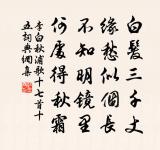 白髮三千丈
緣愁似個長
不知明鏡里
何處得秋霜
李白秋浦歌十七首十
五詞典網集